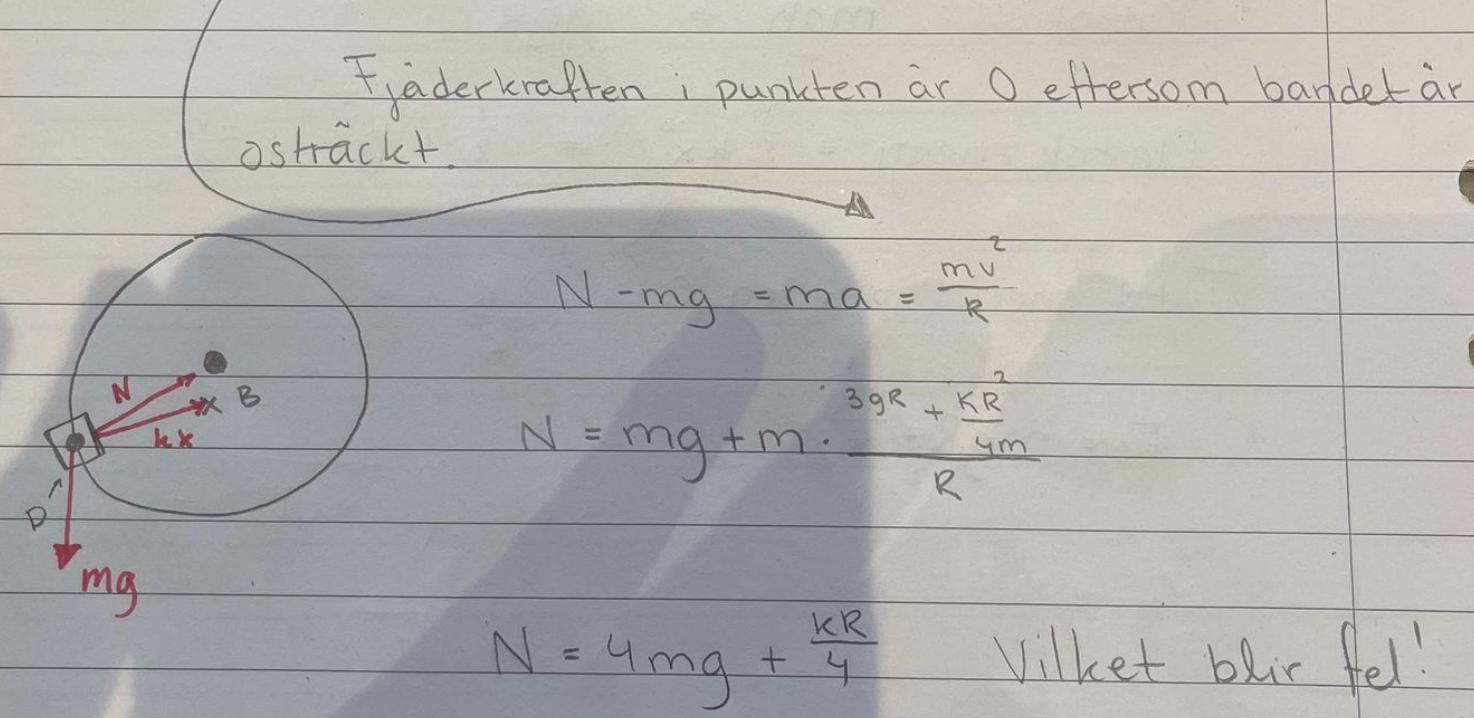 Fjäderkraften i punkten är 0 eftersom bandet är
osträckt.
N - mg = ma = mv²/R
N
B
kx
N = mg + m · (3gR + KR²/4m)/R
D
mg
N = 4mg + KR/4 Vilket blir fel!